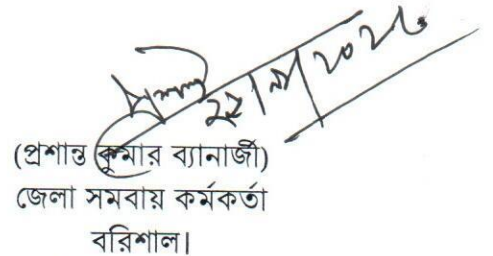 (প্রশান্ত কুমার ব্যানার্জী)
জেলা সমবায় কর্মকর্তা
বরিশাল।